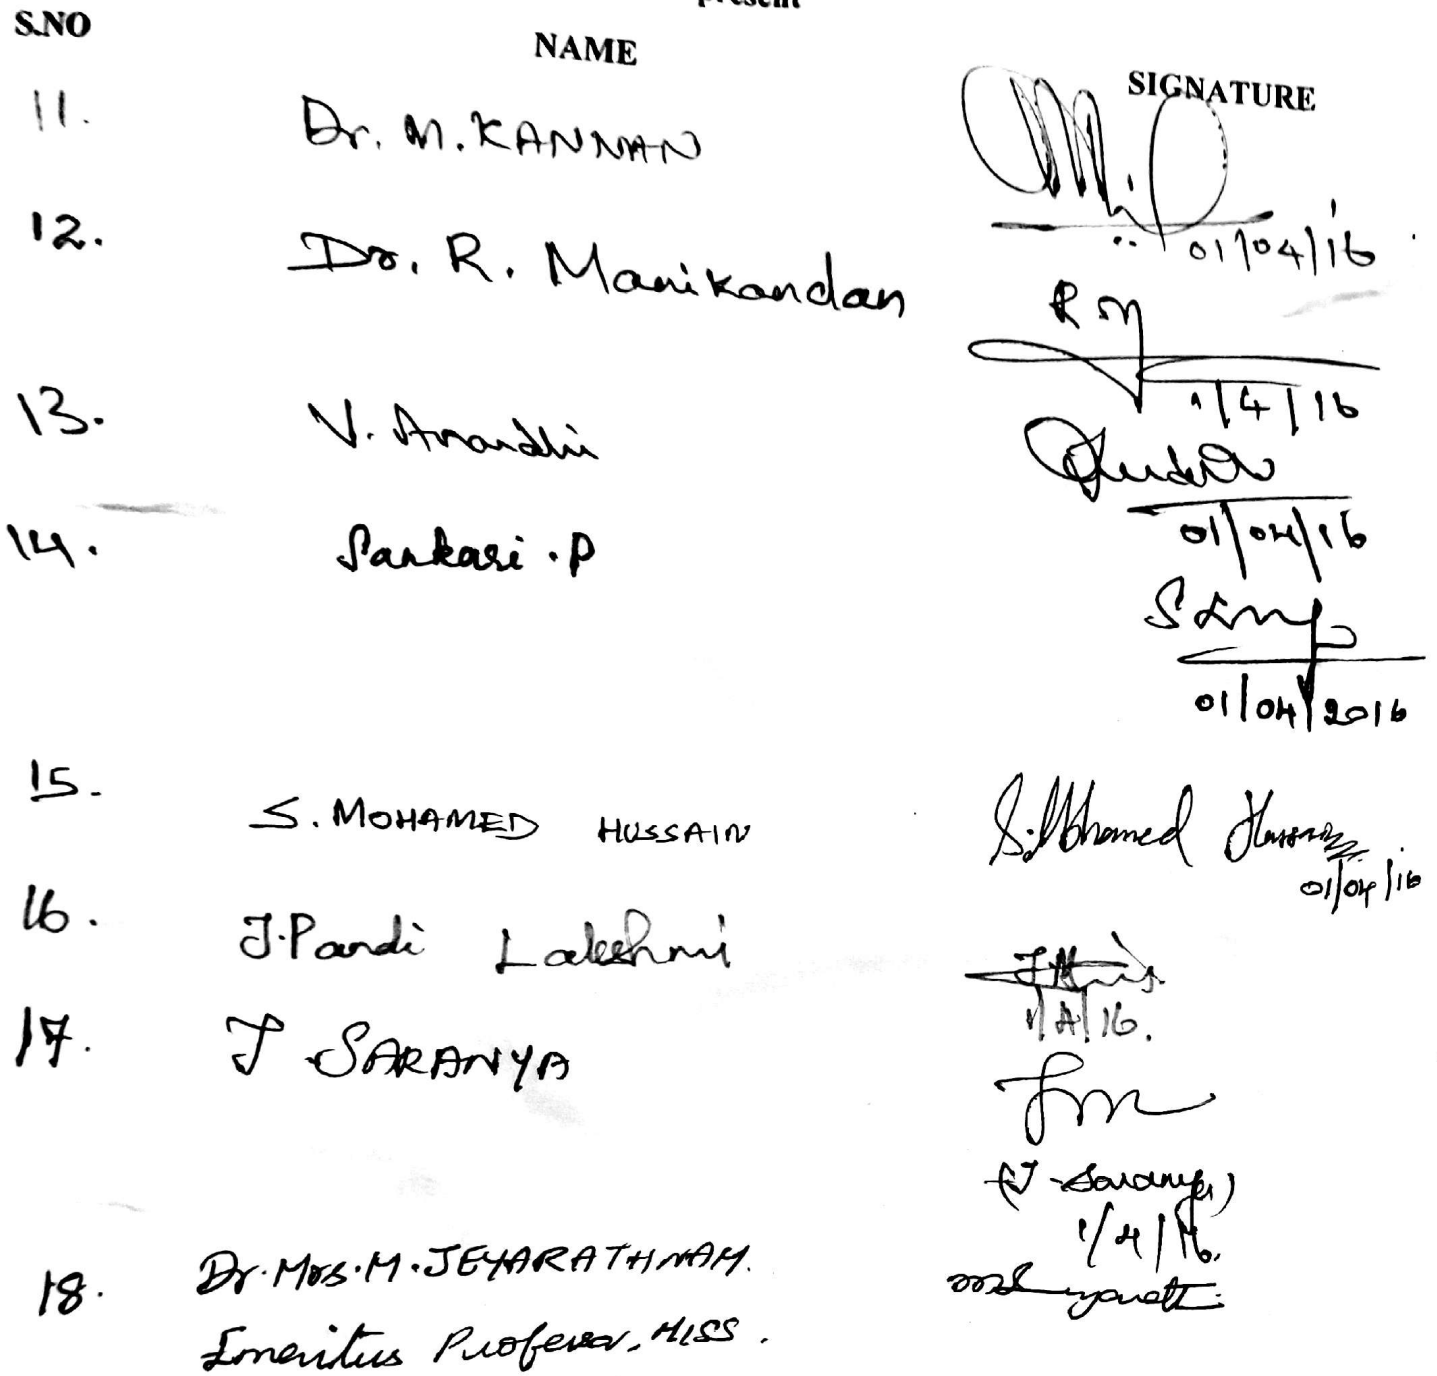 present
S.NO NAME SIGNATURE
11. Dr. M. KANNAN
01/04/16
12. Dr. R. Manikandan R M
1/4/16
13. V. Anandhi
01/04/16
14. Sankari . P
01/04/2016
15. S. MOHAMED HUSSAIN S. Mohamed Hussain
01/04/16
16. J. Pandi Lakshmi
1/4/16.
17. J. SARANYA
(J. Saranya)
1/4/16.
18. Dr. Mrs. M. JEYARATHNAM.
Emeritus Professor, MISS.